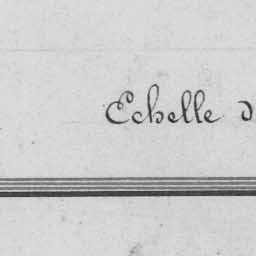 Echelle d